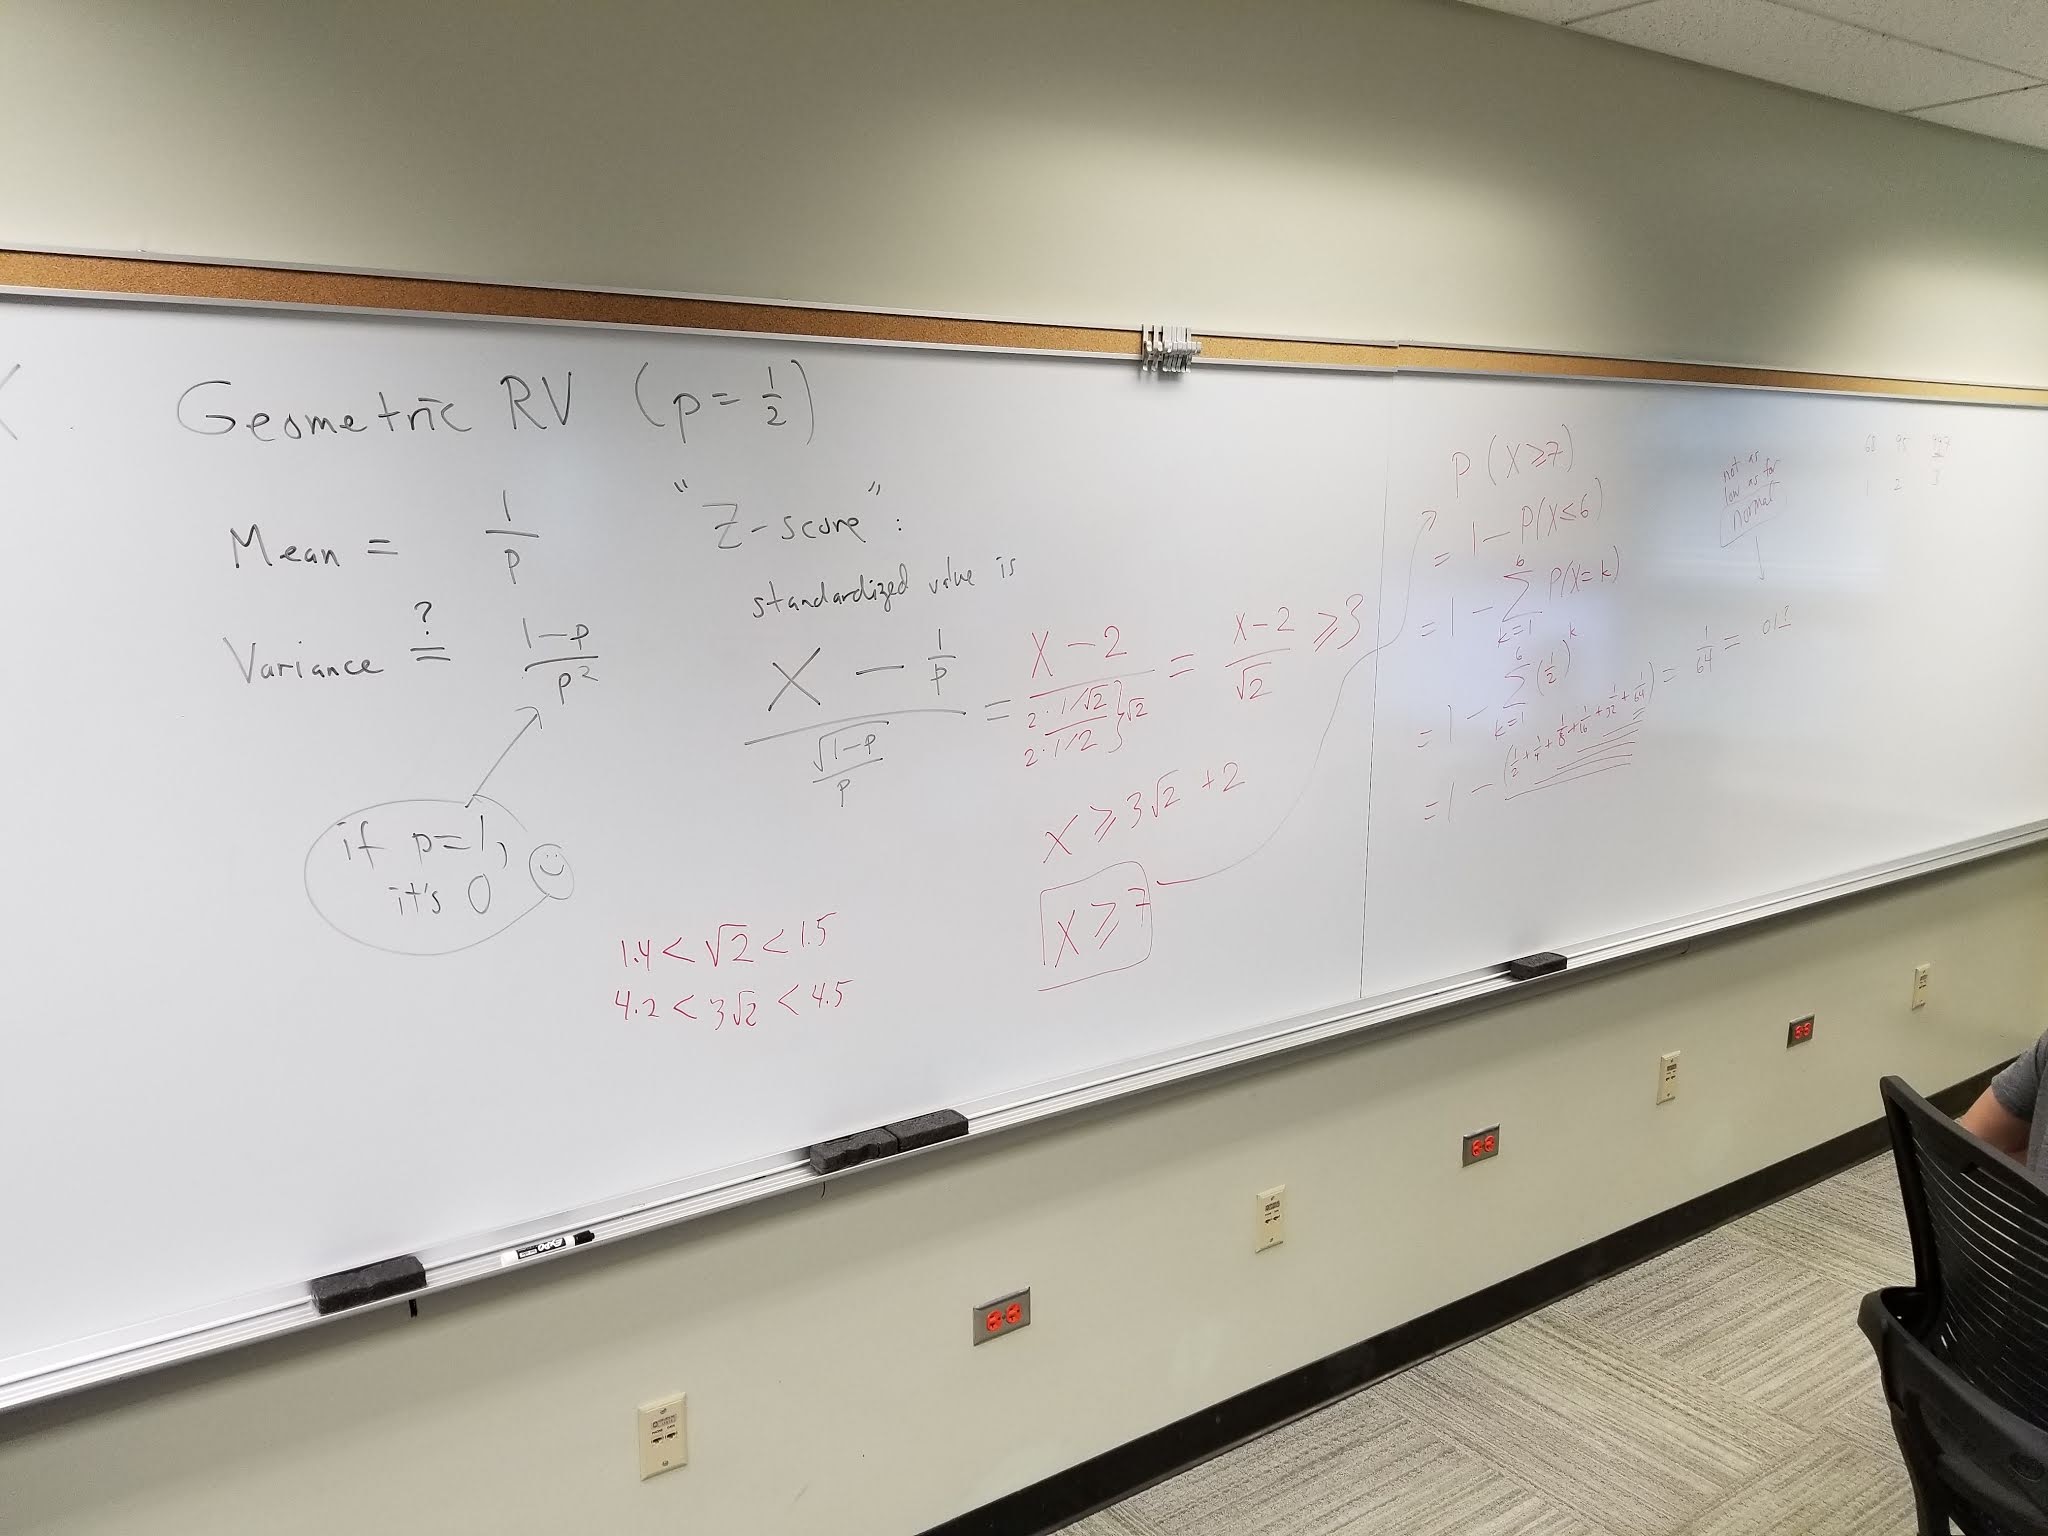 X
Geometric RV (p = 1/2)
Mean = 1/p
Variance ?= (1-p)/p²
if p=1,
it's 0
"Z-score":
standardized value is
(X - 1/p)/(√(1-p)/p) = (X-2)/((2·1/√2)/(2·1/2)}√2) = (X-2)/√2 ≥ 3
X ≥ 3√2 + 2
X ≥ 7
1.4 < √2 < 1.5
4.2 < 3√2 < 4.5
P(X≥7)
= 1 - P(X≤6)
= 1 - ∑_{k=1}^{6} P(X=k)
= 1 - ∑_{k=1}^{6} (1/2)^k
= 1 - (1/2 + 1/4 + 1/8 + 1/16 + 1/32 + 1/64) = 1/64 =
not as
low as for
Normal
68 95
1 2 3
EXPO